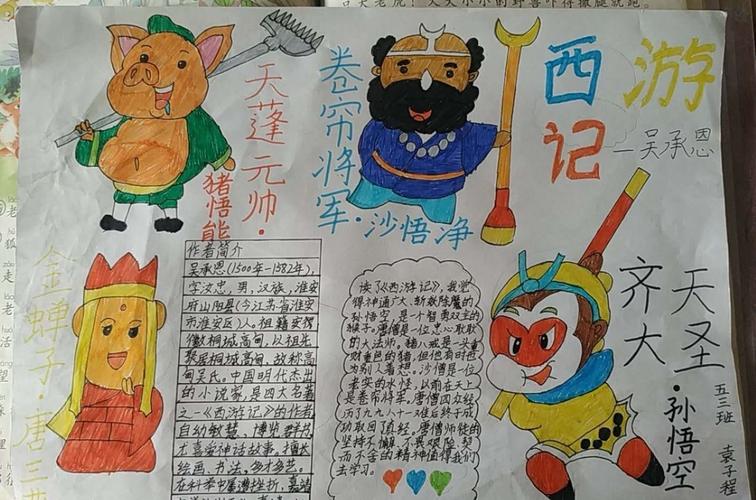 天蓬元帅·
猪悟能
卷帘将军·沙悟净
西游
记
—吴承恩
金蝉子·唐三
作者简介
吴承恩(1500年-1582年),
字汝忠,男,汉族,淮安
府山阳县(今江苏省淮安
市淮安区)人。祖籍安
徽桐城高甸,以祖先
聚居桐城高甸,故称高
甸吴氏。中国明代杰出
的小说家,是四大名著
之一《西游记》的作者
自幼敏慧,博览群书
尤喜爱神话故事。擅长
绘画、书法,多才多艺。
在科举中屡遭挫折,嘉靖
读了《西游记》,我觉
得神通广大、斩妖除魔的
孙悟空,是一个智勇双全的
猴子。唐僧是一位忠心耿耿
的大法师。猪八戒是一头重
财重色的猪,但他有时也
为别人着想。沙僧是一位
老实的水怪,以前在天上
是卷帘将军,唐僧四众经
历了九九八十一难后终于成
功取回了真经。唐僧师徒的
坚持不懈、不畏艰险、契
而不舍的精神值得我们
去学习。
齐天大圣·孙悟空
五三班
袁子程